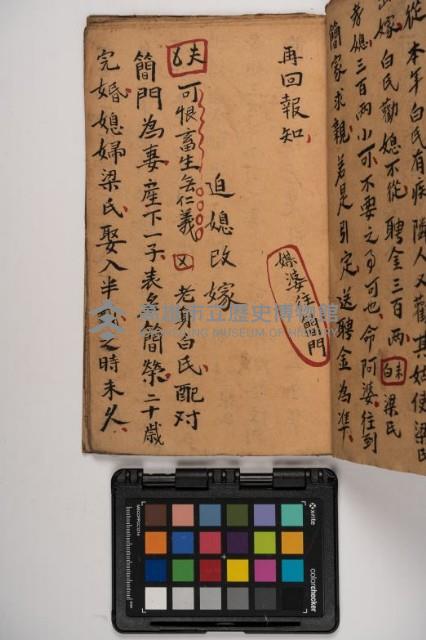 從本年白氏有疾隣人又勸其姑使梁氏
出嫁 白氏勸媳不從 聘金三百兩 白 梁氏
孝媳三百兩小可不要之 可也 命阿婆往到
簡家求親 若是引定 送聘金為準
媒婆往簡門
再回報知
迫媳改嫁
夫 可恨畜生無仁義 又 老身白氏 配对
簡門為妻產下一子 表名簡榮 二十歲
完婚 媳婦梁氏 娶入半 之時未久
高雄市立歷史博物館
KAOHSIUNG MUSEUM OF HISTORY
x-rite
colorchecker